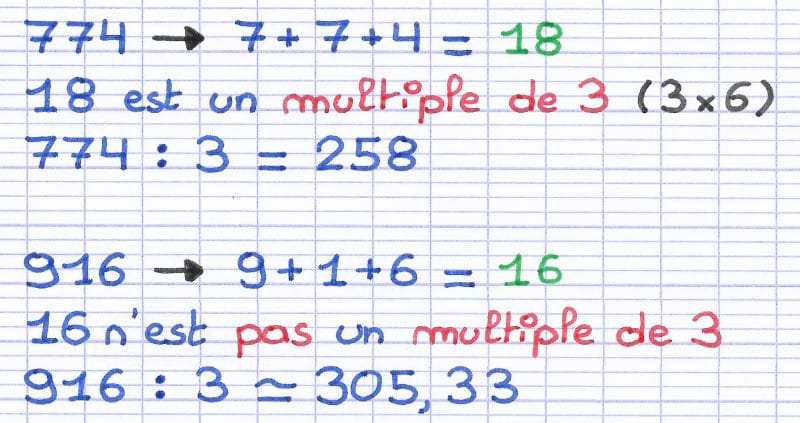 774 → 7+7+4 = 18
18 est un multiple de 3 (3×6)
774 : 3 = 258
916 → 9+1+6 = 16
16 n'est pas un multiple de 3
916 : 3 ≃ 305,33